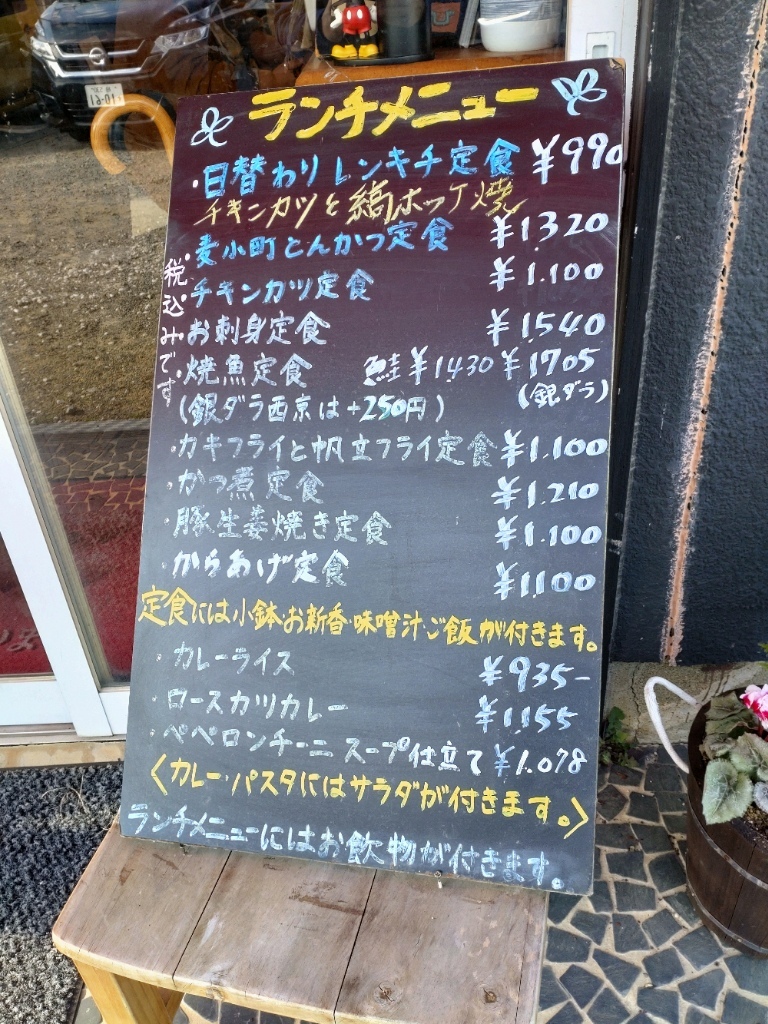 ランチメニュー
・日替わり レンキチ定食 ¥990
チキンカツと縞ホッケ焼
・麦小町とんかつ定食 ¥1.320
・チキンカツ定食 ¥1.100
・お刺身定食 ¥1540
・焼魚定食 鮭¥1430 ¥1705
(銀ダラ西京は+250円) (銀ダラ)
・カキフライと帆立フライ定食 ¥1.100
・かつ煮定食 ¥1.210
・豚生姜焼き定食 ¥1.100
・からあげ定食 ¥1100
税込みです
定食には小鉢・お新香・味噌汁・ご飯が付きます。
・カレーライス ¥935-
・ロースカツカレー ¥1155
・ペペロンチーニ スープ仕立て ¥1.078
〈カレー・パスタにはサラダが付きます。〉
ランチメニューにはお飲物が付きます。